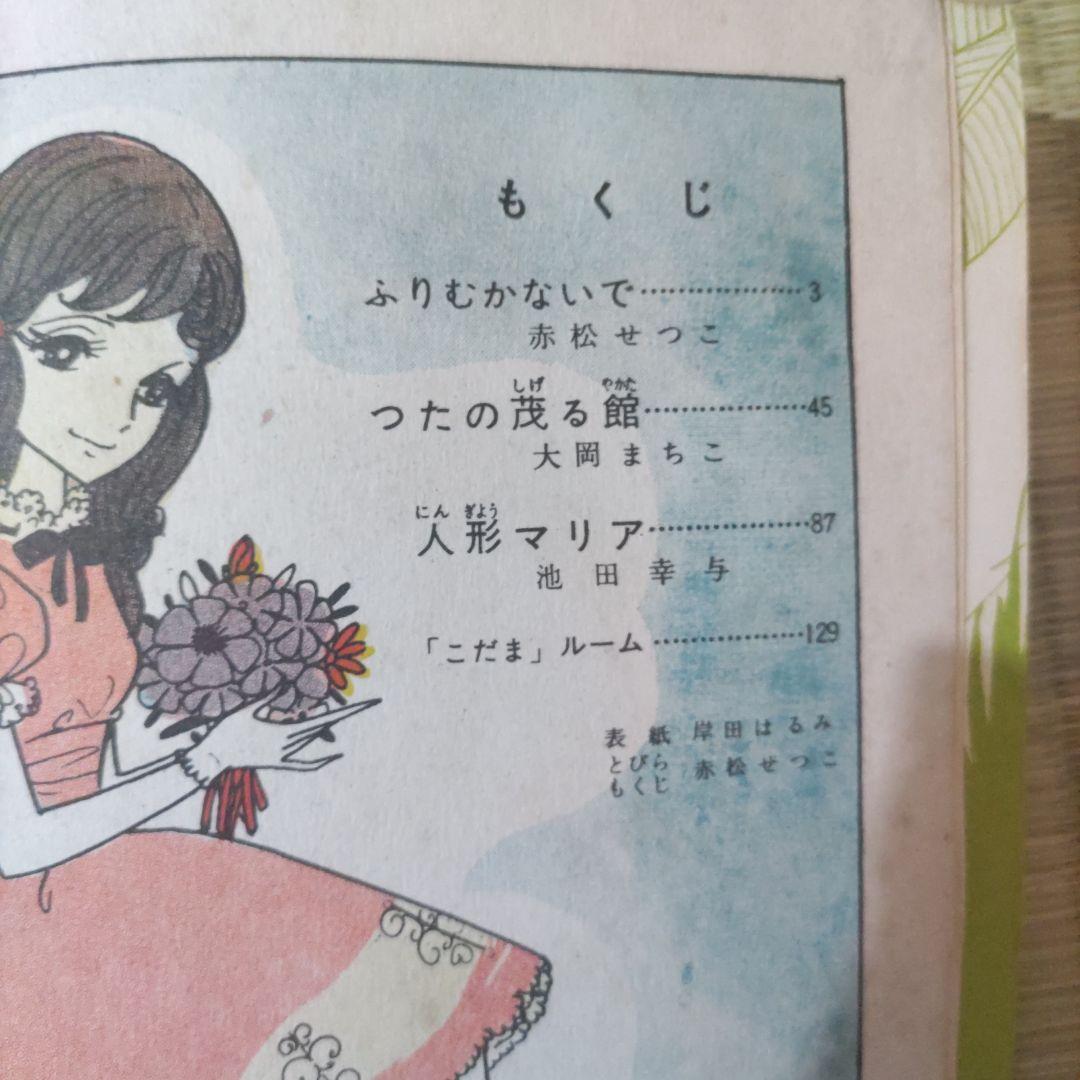 もくじ
ふりむかないで………………3
赤松せつこ
つたの茂る館………………45
しげ やかた
大岡まちこ
人形マリア………………87
にん ぎよう
池田幸与
「こだま」ルーム………………129
表紙 岸田はるみ
とびら
もくじ 赤松せつこ